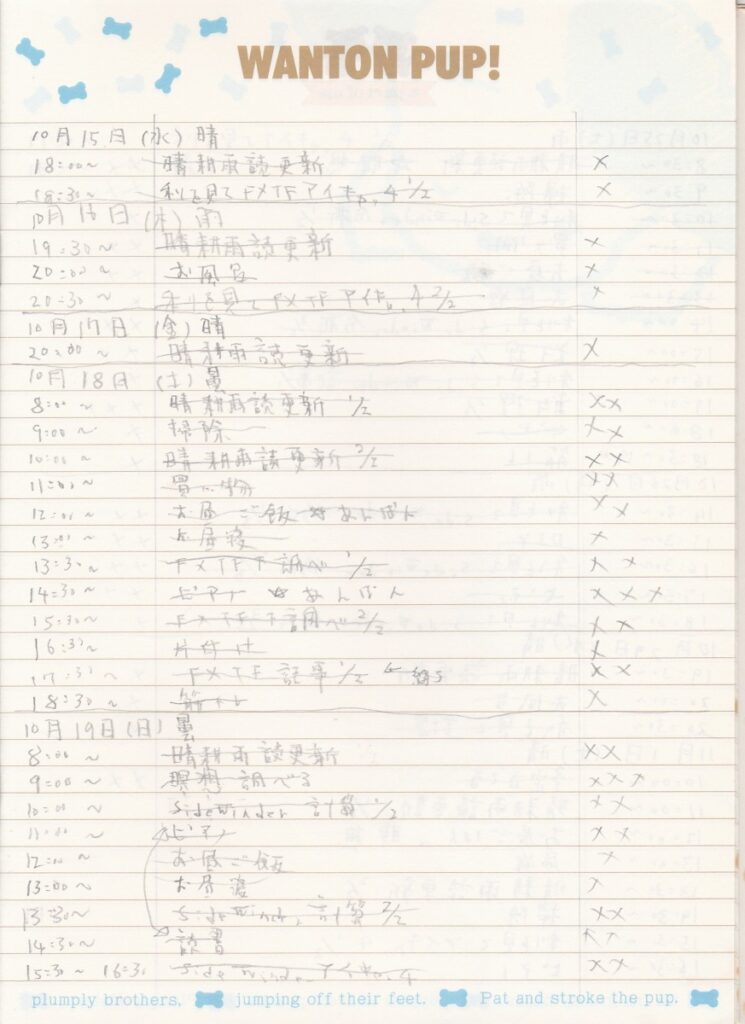 WANTON PUP!
10月15日(水)晴
18:00~ 晴耕雨読更新 ×
18:30~ 利を見て FXTF アイキ 4 1/2 ×
10月16日(木)雨
19:30~ 晴耕雨読更新 ×
20:00~ お風呂 ×
20:30~ 利を見て FXTF アイキ 4 2/2 ×
10月17日(金)晴
20:00~ 晴耕雨読更新 ×
10月18日(土)曇
8:00~ 晴耕雨読更新 1/2 ××
9:00~ 掃除 ××
10:00~ 晴耕雨読更新 2/2 ××
11:00~ 買い物 ××
12:00~ お昼ご飯 あんぱん ××
13:00~ お昼寝 ×
13:30~ FXTF下調べ 1/2 ××
14:30~ ピアノ あんぱん ×××
15:30~ FXTF下調べ 2/2 ××
16:30~ 片付け ×
17:30~ FXTF 記事 1/2 ××
18:30~ 筋トレ ×
10月19日(日)曇
8:00~ 晴耕雨読更新 ××
9:00~ 調べる ×××
10:00~ SideWinder 計算 1/2 ××
11:00~ ピアノ ××
12:00~ お昼ご飯 ×
13:00~ お昼寝 ×
13:30~ SideWinder 計算 2/2 ××
14:30~ 読書 ××
15:30~16:30 SideWinder 4 ××
plumply brothers, jumping off their feet. Pat and stroke the pup.